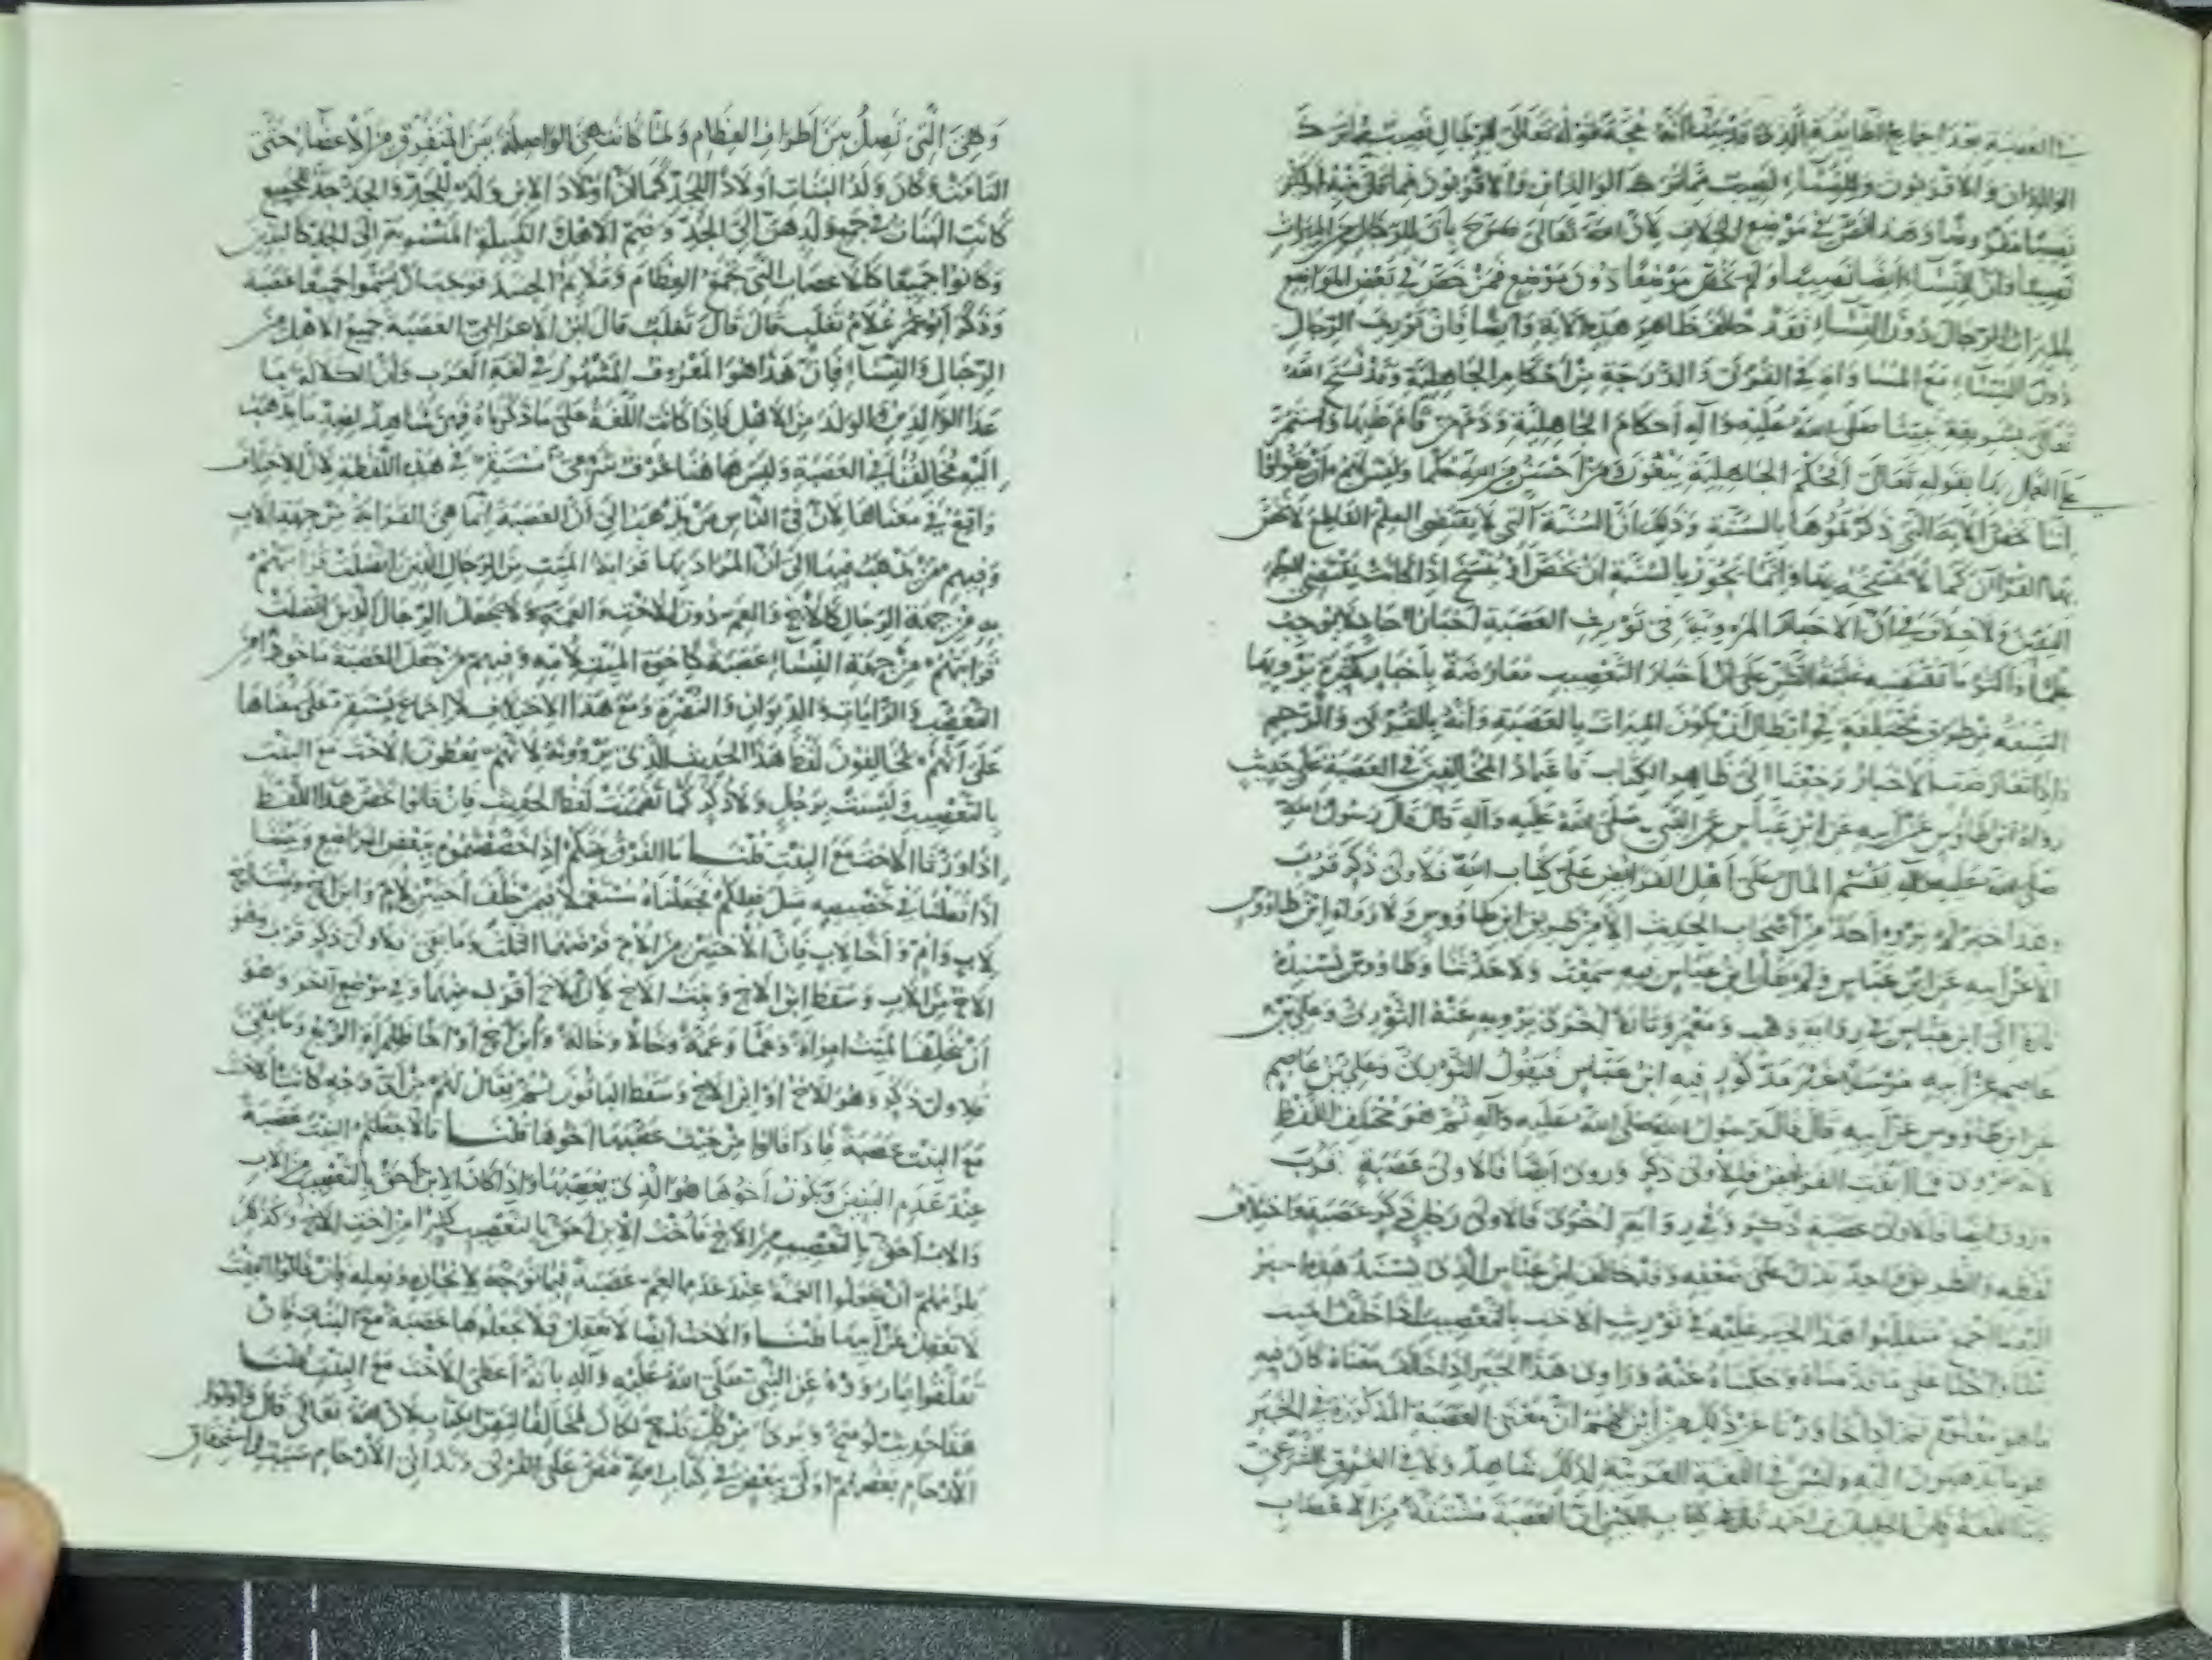 العصبة بعد اجماع الطائفة الذي قد بينا انه حجة قوله تعالى للرجال نصيب مما ترك
الوالدان والاقربون وللنساء نصيب مما ترك الوالدان والاقربون مما قل منه او كثر
نصيبا مفروضا وهذا نص في موضع الخلاف لان الله تعالى صرح بان للرجال من الميراث
نصيبا وان للنساء ايضا نصيبا ولم يخص موضعا دون موضع فمن خص في بعض المواضع
الميراث للرجال دون النساء فقد خالف ظاهر هذه الاية وايضا فان توريث الرجال
دون النساء مع المساواة في القربى والدرجة من احكام الجاهلية وقد نسخ الله
تعالى بشريعة نبينا صلى الله عليه وآله احكام الجاهلية وذم من اقام عليها واستمر
على العمل بها بقوله تعالى افحكم الجاهلية يبغون ومن احسن من الله حكما وليس لهم ان يقولوا
اننا نخص الاية التي ذكرتموها بالسنة وذلك ان السنة التي لا تقتضي العلم القاطع لا نخص
بها القرآن كما لا ننسخه بها وانما يجوز بالسنة ان نخص او ننسخ اذا كانت تقتضي العلم
اليقين ولا خلاف في ان الاخبار المروية في توريث العصبة اخبار احاد لا توجب
علما واكثر ما تقتضيه غلبة الظن على ان اخبار التعصيب معارضة باخبار كثيرة ترويها
الشيعة من طرق مختلفة في ابطال ان يكون الميراث بالعصبة وانه بالقربى والرحم
واذا تعارضت الاخبار رجعنا الى ظاهر الكتاب فاعتماد المخالفين في العصبة على حديث
رواه ابن طاووس عن ابيه عن ابن عباس عن النبي صلى الله عليه وآله قال قال رسول الله
صلى الله عليه وآله يقسم المال على اهل الفرائض على كتاب الله فلاولى ذكر قرب
وهذا خبر لم يروه احد من اصحاب الحديث الا من طريق ابن طاووس ولا رواه ابن طاووس
الا عن ابيه عن ابن عباس ولم يقل ابن عباس فيه سمعت ولا حدثنا وطاووس يسنده
تارة الى ابن عباس في رواية وهب ومعمر وتارة اخرى يرويه عنه الثوري وعلي بن
عاصم عن ابيه مرسلا غير مذكور فيه ابن عباس فيقول الثوري وعلي بن عاصم
عن ابن طاووس عن ابيه قال قال رسول الله صلى الله عليه وآله ثم هو مختلف اللفظ
فما ابقت الفرائض فلاولى ذكر وروي ايضا فلاولى عصبة قرب
وروي ايضا فلاولى عصبة ذكر وفي رواية اخرى فلاولى رجل ذكر عصبة واختلاف
لفظه والطريق واحد يدل على ضعفه وقد خالف ابن عباس الذي يسند هذا الخبر
اليه في توريث الاخت بالتعصيب اذا خلف الميت
بنتا واختا على ما قدمناه وحكيناه عنه وراوي هذا الخبر اذا خالف معناه كان فيه
ما هو معلوم ثم اذا تجاوزنا عن ذلك من اين لهم ان معنى العصبة المذكورة في الخبر
هو ما يذهبون اليه وليس في اللغة العربية لذلك شاهد ولا في العرف الشرعي
فاما اللغة فان الخليل بن احمد قال في كتاب العين ان العصبة مشتقة من الاعصاب
وهي التي تصل بين اطراف العظام ولما كانت هي الواصلة بين المتفرق من الاعضاء حتى
التأمت وكان ولد البنات اولادا للجد كما ان اولاد الابن ولد للجد والجد جد للجميع
كانت البنات في جمع ولدهن الى الجد وضم الاهل والقبيلة المنسوبة الى الجد كالبنين
وكانوا جميعا كالاعصاب التي تجمع العظام وتلائم الجسد فوجب ان يسموا جميعا عصبة
وذكر ابو عمر غلام ثعلب قال قال ثعلب قال ابن الاعرابي العصبة جميع الاهل من
الرجال والنساء فان هذا هو المعروف المشهور في لغة العرب وان الكلالة ما
عدا الوالدين والولد من الاهل فاذا كانت اللغة على ما ذكرناه فهي شاهد لضد ما يذهب
اليه مخالفنا في العصبة وليس هاهنا عرف شرعي مستقر في هذه اللفظة لان الاختلاف
واقع في معناها لان في الناس من يذهب الى ان العصبة انما هي القرابة من جهة الاب
وفيهم من يذهب فيها الى ان المراد بها قرابة الميت من الرجال الذين اتصلت قرابتهم
به من جهة الرجال كالاخ والعم دون الاخت والعمة ولا يجعل الرجال الذين اتصلت
قرابتهم من جهة النساء عصبة كاخوة الميت لامه وفيهم من جعل العصبة ماخوذا من
التعصب والرايات والديوان والنصرة ومع هذا الاختلاف لا اجماع يستقر على معناها
على انهم يخالفون لفظ هذا الحديث الذي يروونه لانهم يعطون الاخت مع البنت
بالتعصيب وليست برجل ولا ذكر كما تضمنت لفظ الحديث فان قالوا نخص هذا اللفظ
اذا ورثنا الاخت مع البنت قلنا ما الفرق بينكم اذا خصصتموه ببعض المواضع وبيننا
اذا فعلنا في تخصيصه مثل فعلكم فجعلناه مستعملا فيمن خلف اختين لام وابن اخ وبنت اخ
لاب وام واخا لاب فان الاختين من الام فرضهما الثلث وما بقي فلاولى ذكر قرب وهو
الاخ من الاب وسقط ابن الاخ وبنت الاخ لان الاخ اقرب منهما وفي موضع آخر وهو
ان يخلف الميت امراة وعما وعمة وخالا وخالة وابن اخ او اخا فللمراة الربع وما بقي
فلاولى ذكر وهو الاخ او ابن الاخ وسقط الباقون ثم يقال لهم من اي وجه كانت الاخت
مع البنت عصبة فاذا قالوا من حيث عصبها اخوها قلنا فالا جعلتم البنت عصبة
عند عدم البنين ويكون اخوها هو الذي يعصبها واذا كان الابن احق بالتعصيب من الاب
والاب احق بالتعصيب من الاخ فاخت الابن احق بالتعصيب كثيرا من اخت الاخ وكذلك
يلزمهم ان يجعلوا العمة عند عدم العم عصبة فيما توجه لانجازه وفعله فان قالوا البنت
لا تعقل عن ابيها قلنا والاخت ايضا لا تعقل فلا تجعلوها عصبة مع البنات فان
تعلقوا بما رووه عن النبي صلى الله عليه وآله بانه اعطى الاخت مع البنت قلنا
هذا حديث لو صح وبرئ من كل قدح لكان مخالفا لنص الكتاب لان الله تعالى قال واولوا
الارحام بعضهم اولى ببعض في كتاب الله فنص على القربى وتداني الارحام سبب في استحقاق